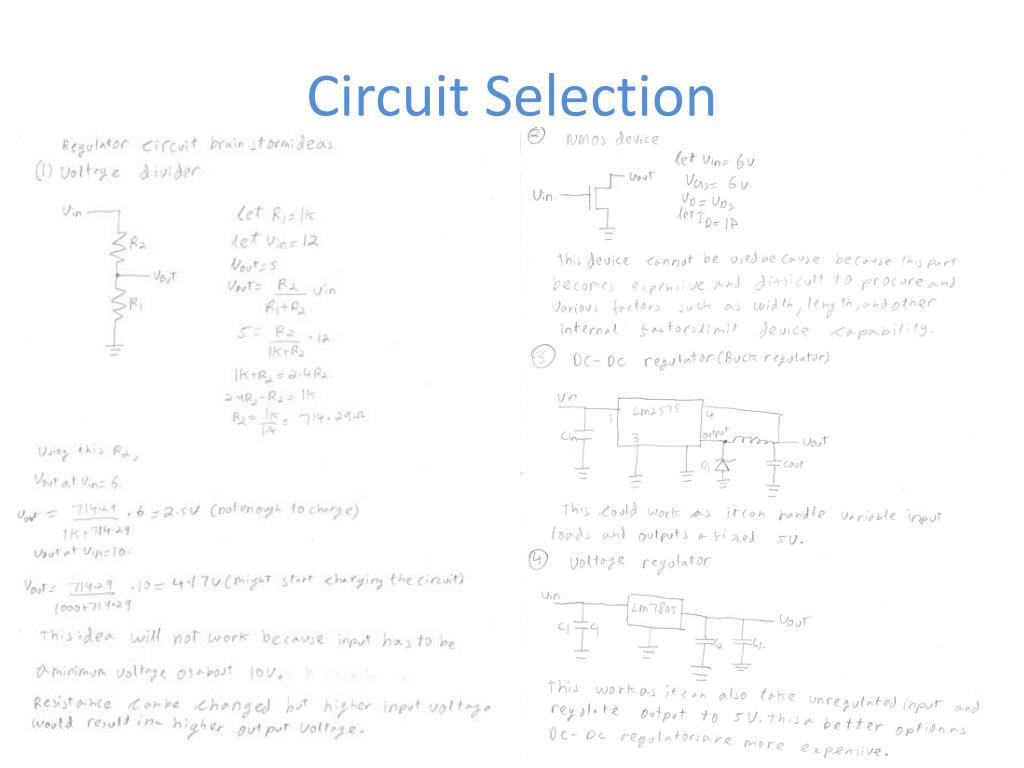 Circuit Selection
Regulator circuit brainstormideas
(1) Voltage divider
Vin
R2
Vout
R1
let R1 = 1K
let Vin = 12
Vout = 5
Vout = R2 / R1+R2 Vin
5 = R2 / 1K+R2 · 12
1K+R2 = 2.4R2
2.4R2 - R2 = 1K
R2 = 1K / 1.4 = 714.29Ω
Using this R2,
Vout at Vin = 6.
Vout = 714.29 / 1K+714.29 · 6 = 2.5V (not enough to charge)
Vout at Vin = 10.
Vout = 714.29 / 1000+714.29 · 10 = 4.17V (might start charging the circuit)
This idea will not work because input has to be
a minimum voltage of about 10V.
Resistance can be changed but higher input voltage
would result in a higher output voltage.
(2) NMOS device
Vin
Vout
let Vin = 6V
VGS = 6V
VD = VDS
let ID = 1A
This device cannot be used be cause because this part
becomes expensive and difficult to procure and
various factors such as width, length, and other
internal factors limit device capability.
(3) DC-DC regulator (Buck regulator)
Vin
Cin
1
LM2575
4
3
output
D1
Vout
Cout
This could work as it can handle variable input
loads and outputs a fixed 5V.
(4) Voltage regulator
Vin
C1
C1
LM7805
Vout
C2
C3
This work as it can also take unregulated input and
regulate output to 5V. this a better option as
DC-DC regulators are more expensive.